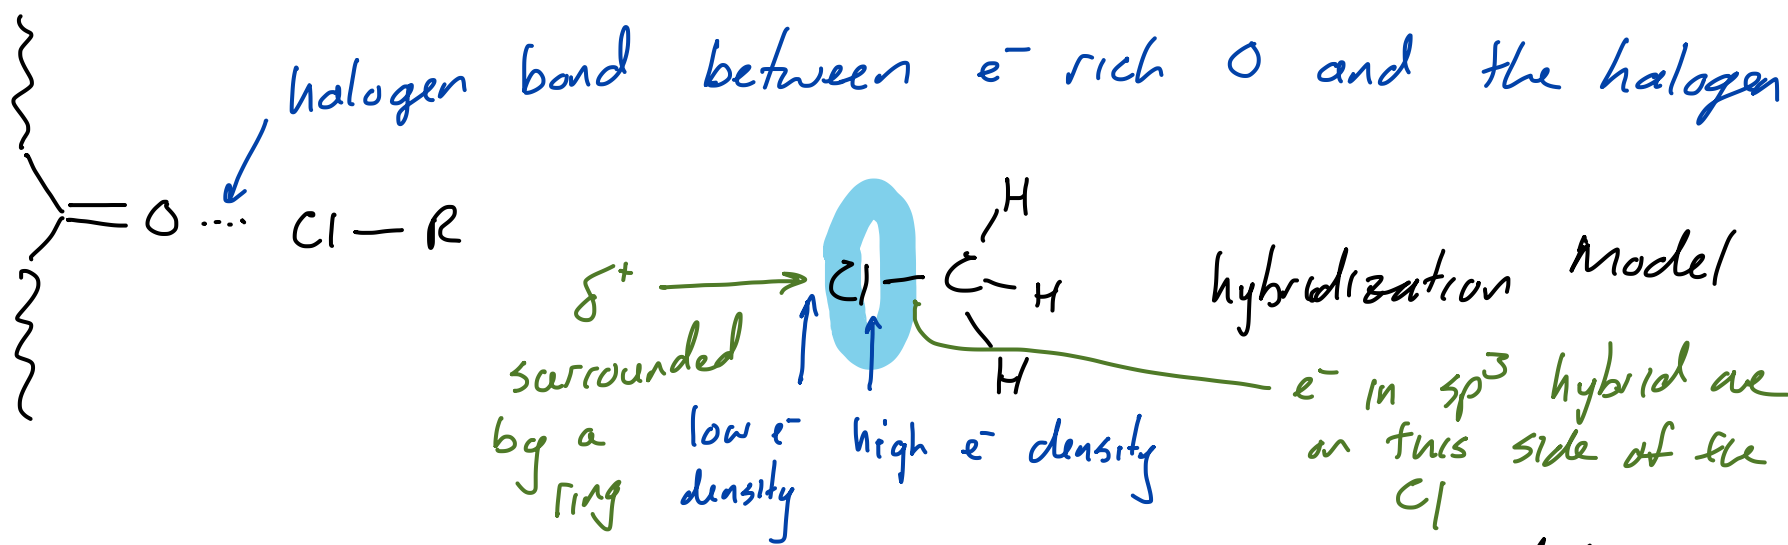 halogen bond between e⁻ rich O and the halogen
O .... Cl — R
H
δ⁺ → Cl — C — H
H
hybridization Model
surrounded by a ring
low e⁻ density
high e⁻ density
e⁻ in sp³ hybrid are
on this side of the
Cl